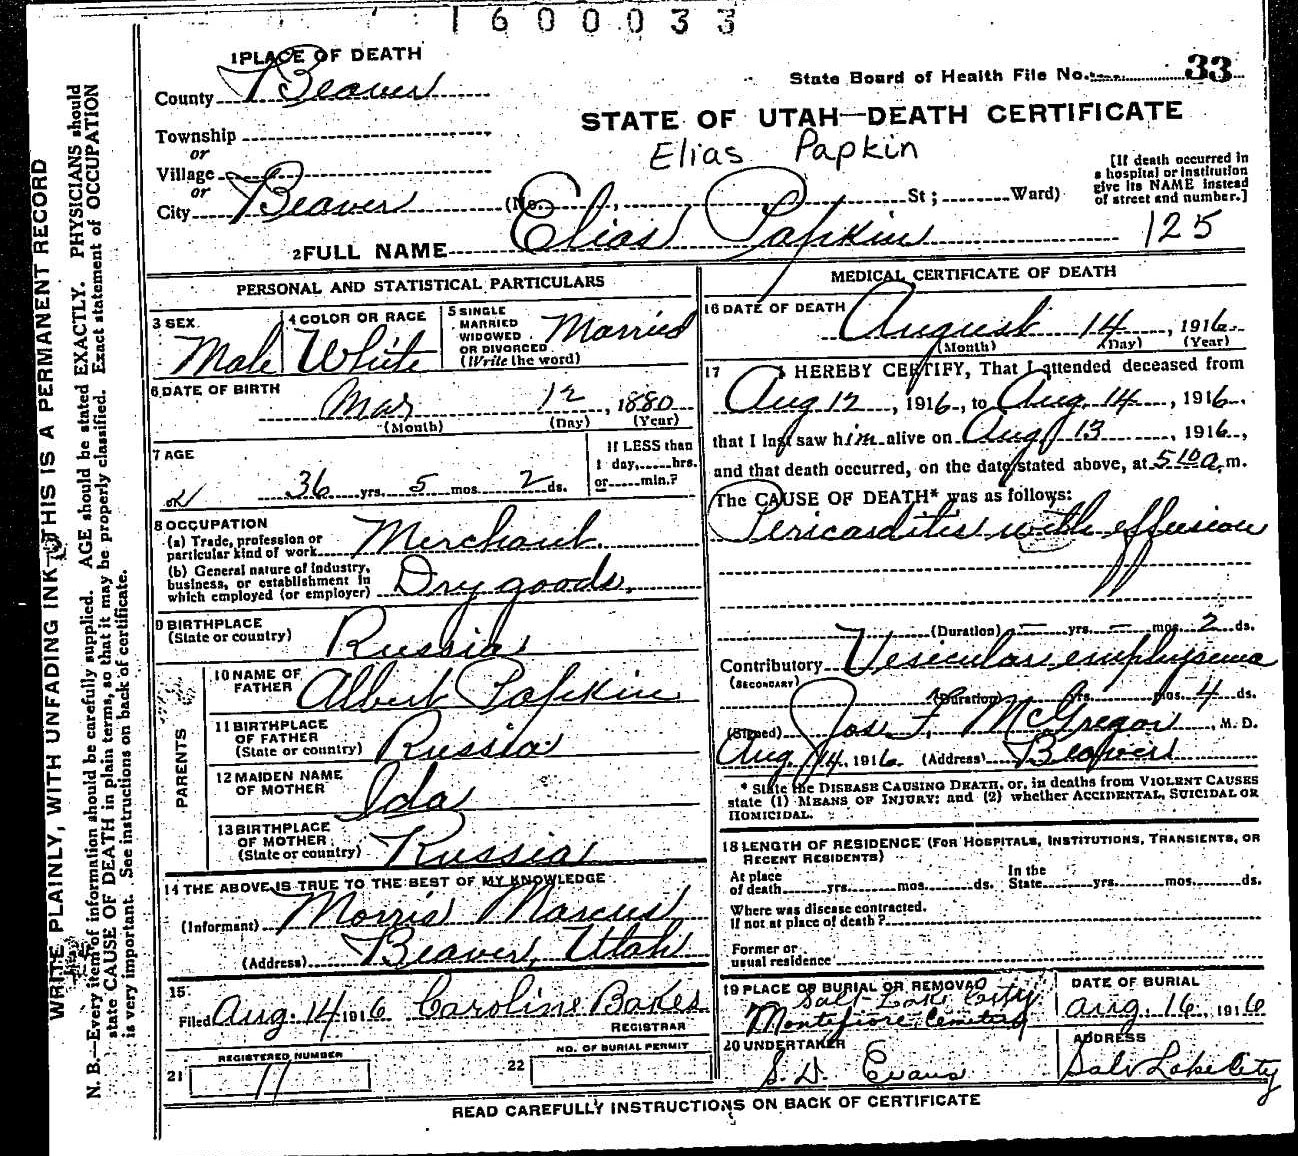 1600033
1 PLACE OF DEATH
County Beaver
State Board of Health File No. 33
Township
or
Village
or
City Beaver
STATE OF UTAH—DEATH CERTIFICATE
Elias Papkin
(No. , St; Ward)
[If death occurred in
a hospital or institution
give its NAME instead
of street and number.]
2 FULL NAME Elias Papkin
125
PERSONAL AND STATISTICAL PARTICULARS
3 SEX
Male
4 COLOR OR RACE
White
5 SINGLE
MARRIED
WIDOWED
OR DIVORCED
(Write the word)
Married
6 DATE OF BIRTH
Mar 12, 1880
(Month) (Day) (Year)
7 AGE
36 yrs. 5 mos. 2 ds.
If LESS than
1 day, hrs.
or min.?
8 OCCUPATION
(a) Trade, profession or
particular kind of work Merchant
(b) General nature of Industry,
business, or establishment in
which employed (or employer) Dry goods.
9 BIRTHPLACE
(State or country) Russia
PARENTS
10 NAME OF
FATHER Albert Papkin
11 BIRTHPLACE
OF FATHER
(State or country) Russia
12 MAIDEN NAME
OF MOTHER Ida
13 BIRTHPLACE
OF MOTHER
(State or country) Russia
14 THE ABOVE IS TRUE TO THE BEST OF MY KNOWLEDGE
(Informant) Morris Marcus
(Address) Beaver, Utah
15
Filed Aug. 14 1916 Caroline Bakes
REGISTRAR
REGISTERED NUMBER
21 11
NO. OF BURIAL PERMIT
22
MEDICAL CERTIFICATE OF DEATH
16 DATE OF DEATH
August 14, 1916
(Month) (Day) (Year)
17 I HEREBY CERTIFY, That I attended deceased from
Aug 12, 1916, to Aug. 14, 1916.
that I last saw him alive on Aug 13, 1916,
and that death occurred, on the date stated above, at 5 10 a. m.
The CAUSE OF DEATH* was as follows:
Pericarditis with effusion
(Duration) — yrs. — mos. 2 ds.
Contributory Vesicular emphysema
(SECONDARY)
(Duration) yrs. mos. 4 ds.
(Signed) Jos. F. McGregor, M. D.
Aug. 14, 1916. (Address) Beaver
* State the DISEASE CAUSING DEATH, or, in deaths from VIOLENT CAUSES
state (1) MEANS OF INJURY; and (2) whether ACCIDENTAL, SUICIDAL OR
HOMICIDAL.
18 LENGTH OF RESIDENCE (FOR HOSPITALS, INSTITUTIONS, TRANSIENTS, OR
RECENT RESIDENTS)
At place
of death yrs. mos. ds.
In the
State yrs. mos. ds.
Where was disease contracted.
If not at place of death?
Former or
usual residence
19 PLACE OF BURIAL OR REMOVAL
Salt Lake City
Montefiore Cemetery
DATE OF BURIAL
Aug. 16, 1916
20 UNDERTAKER
S. D. Evans
ADDRESS
Salt Lake City
READ CAREFULLY INSTRUCTIONS ON BACK OF CERTIFICATE
WRITE PLAINLY, WITH UNFADING INK—THIS IS A PERMANENT RECORD
N. B.—Every item of information should be carefully supplied. AGE should be stated EXACTLY. PHYSICIANS should
state CAUSE OF DEATH in plain terms, so that it may be properly classified. Exact statement of OCCUPATION
is very important. See instructions on back of certificate.